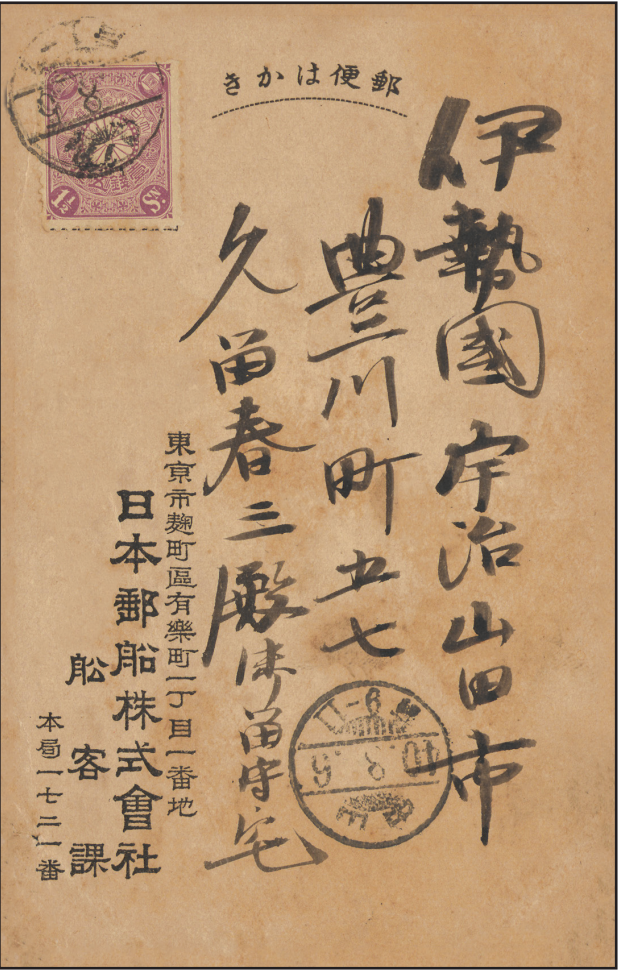 郵便はかき
伊勢國宇治山田市
豊川町五七
久留春三殿御留守宅
東亰市麹町區有樂町一丁目一番地
日本郵船株式會社
船客課
本局一七二一番
1½ Sn.